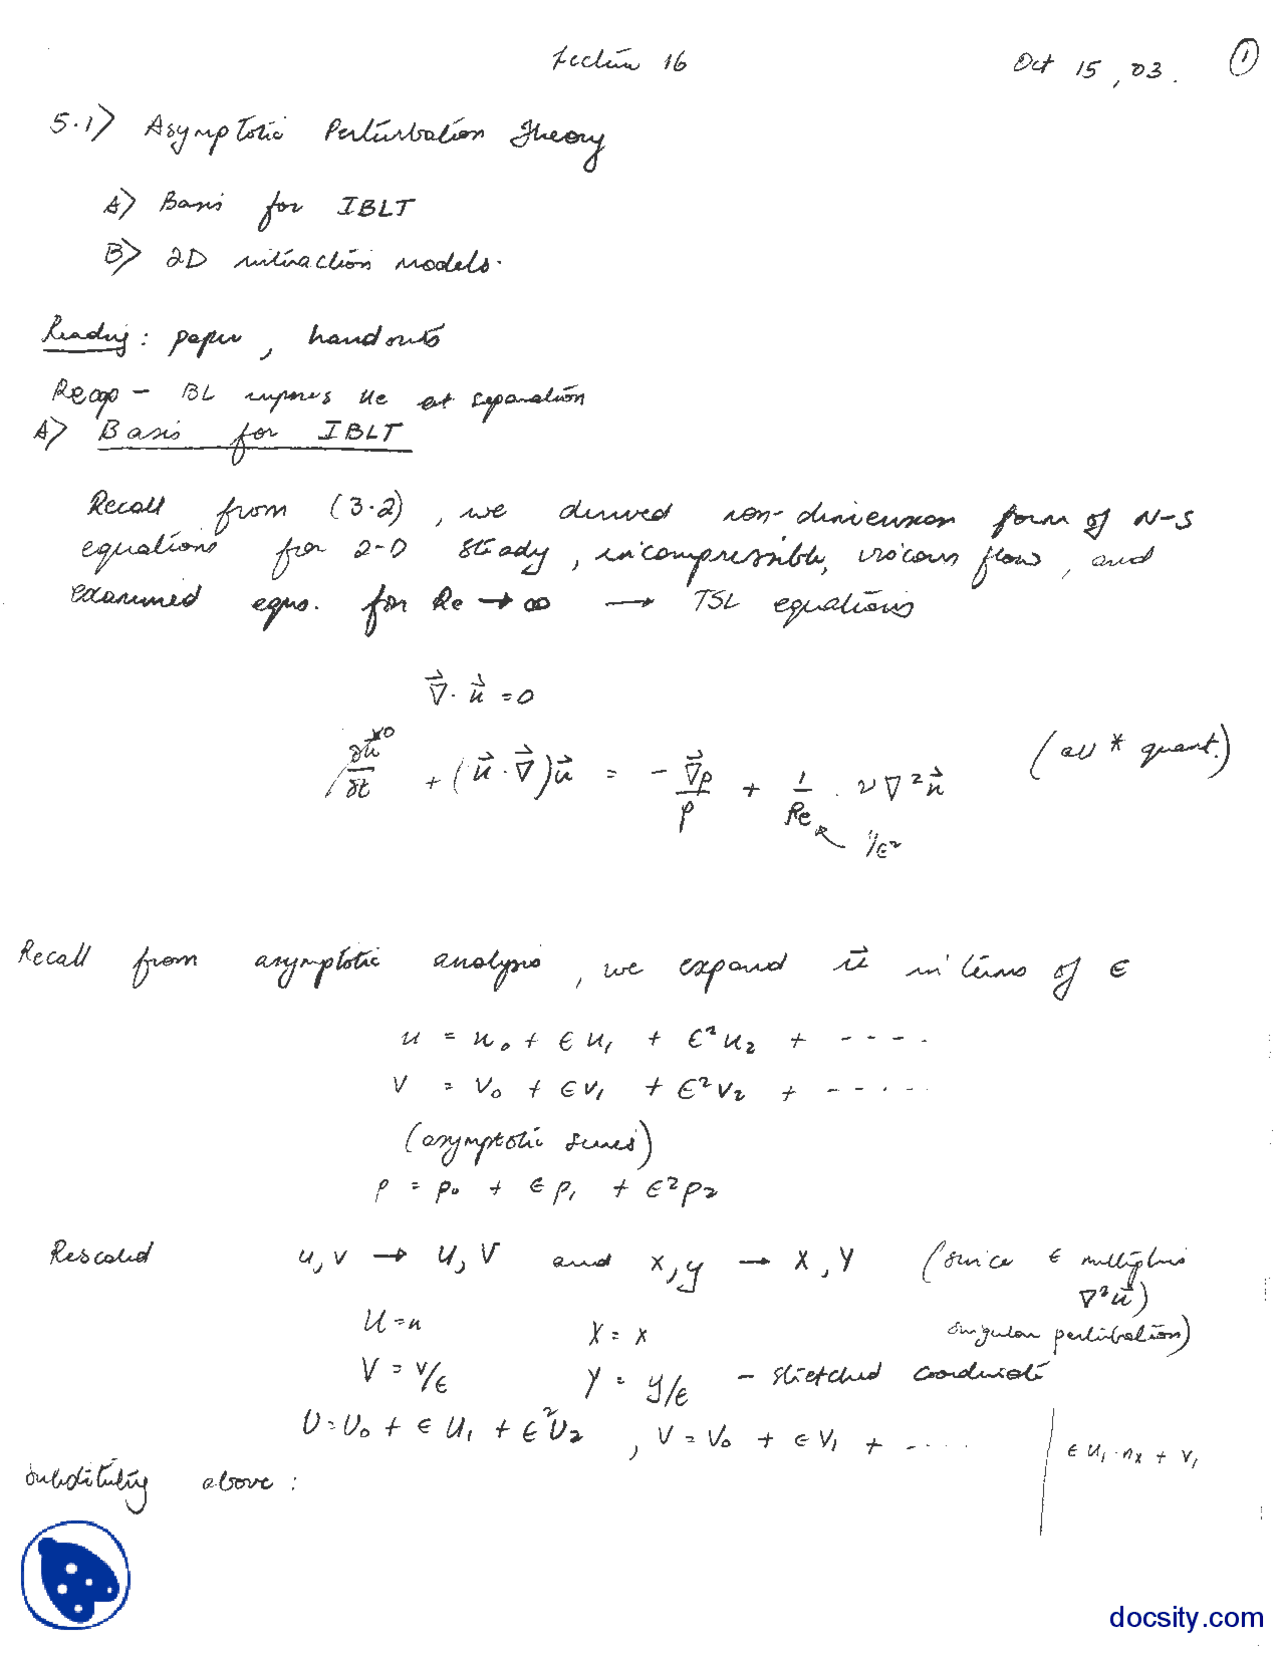 Lecture 16
Oct 15, 03.
1
5.1) Asymptotic Perturbation Theory
A) Basis for IBLT
B) 2D interaction models.
Reading: paper, handouts
Recap - BL imposes ue at separation
A) Basis for IBLT
Recall from (3.2), we derived non-dimension form of N-S
equations for 2-D steady, incompressible, viscous flow, and
examined eqns. for Re → ∞ → TSL equations
∇⃗ · u⃗ = 0
∂u⃗/∂t →0 + (u⃗ · ∇⃗)u⃗ = - ∇⃗p/ρ + 1/Re · ν∇²u⃗ (all * quant.)
1/ε²
Recall from asymptotic analysis, we expand u⃗ in terms of ε
u = u₀ + εu₁ + ε²u₂ + - - - -
v = v₀ + εv₁ + ε²v₂ + - - - - -
(asymptotic series)
p = p₀ + εp₁ + ε²p₂
Rescaled u, v → U, V and x, y → X, Y (since ε multiplies
∇²u⃗)
U = u X = x singular perturbation)
V = v/ε Y = y/ε - stretched coordinate
U = U₀ + εU₁ + ε²U₂, V = V₀ + εV₁ + - - - -
εU₁·nx + V₁
Substituting above:
docsity.com